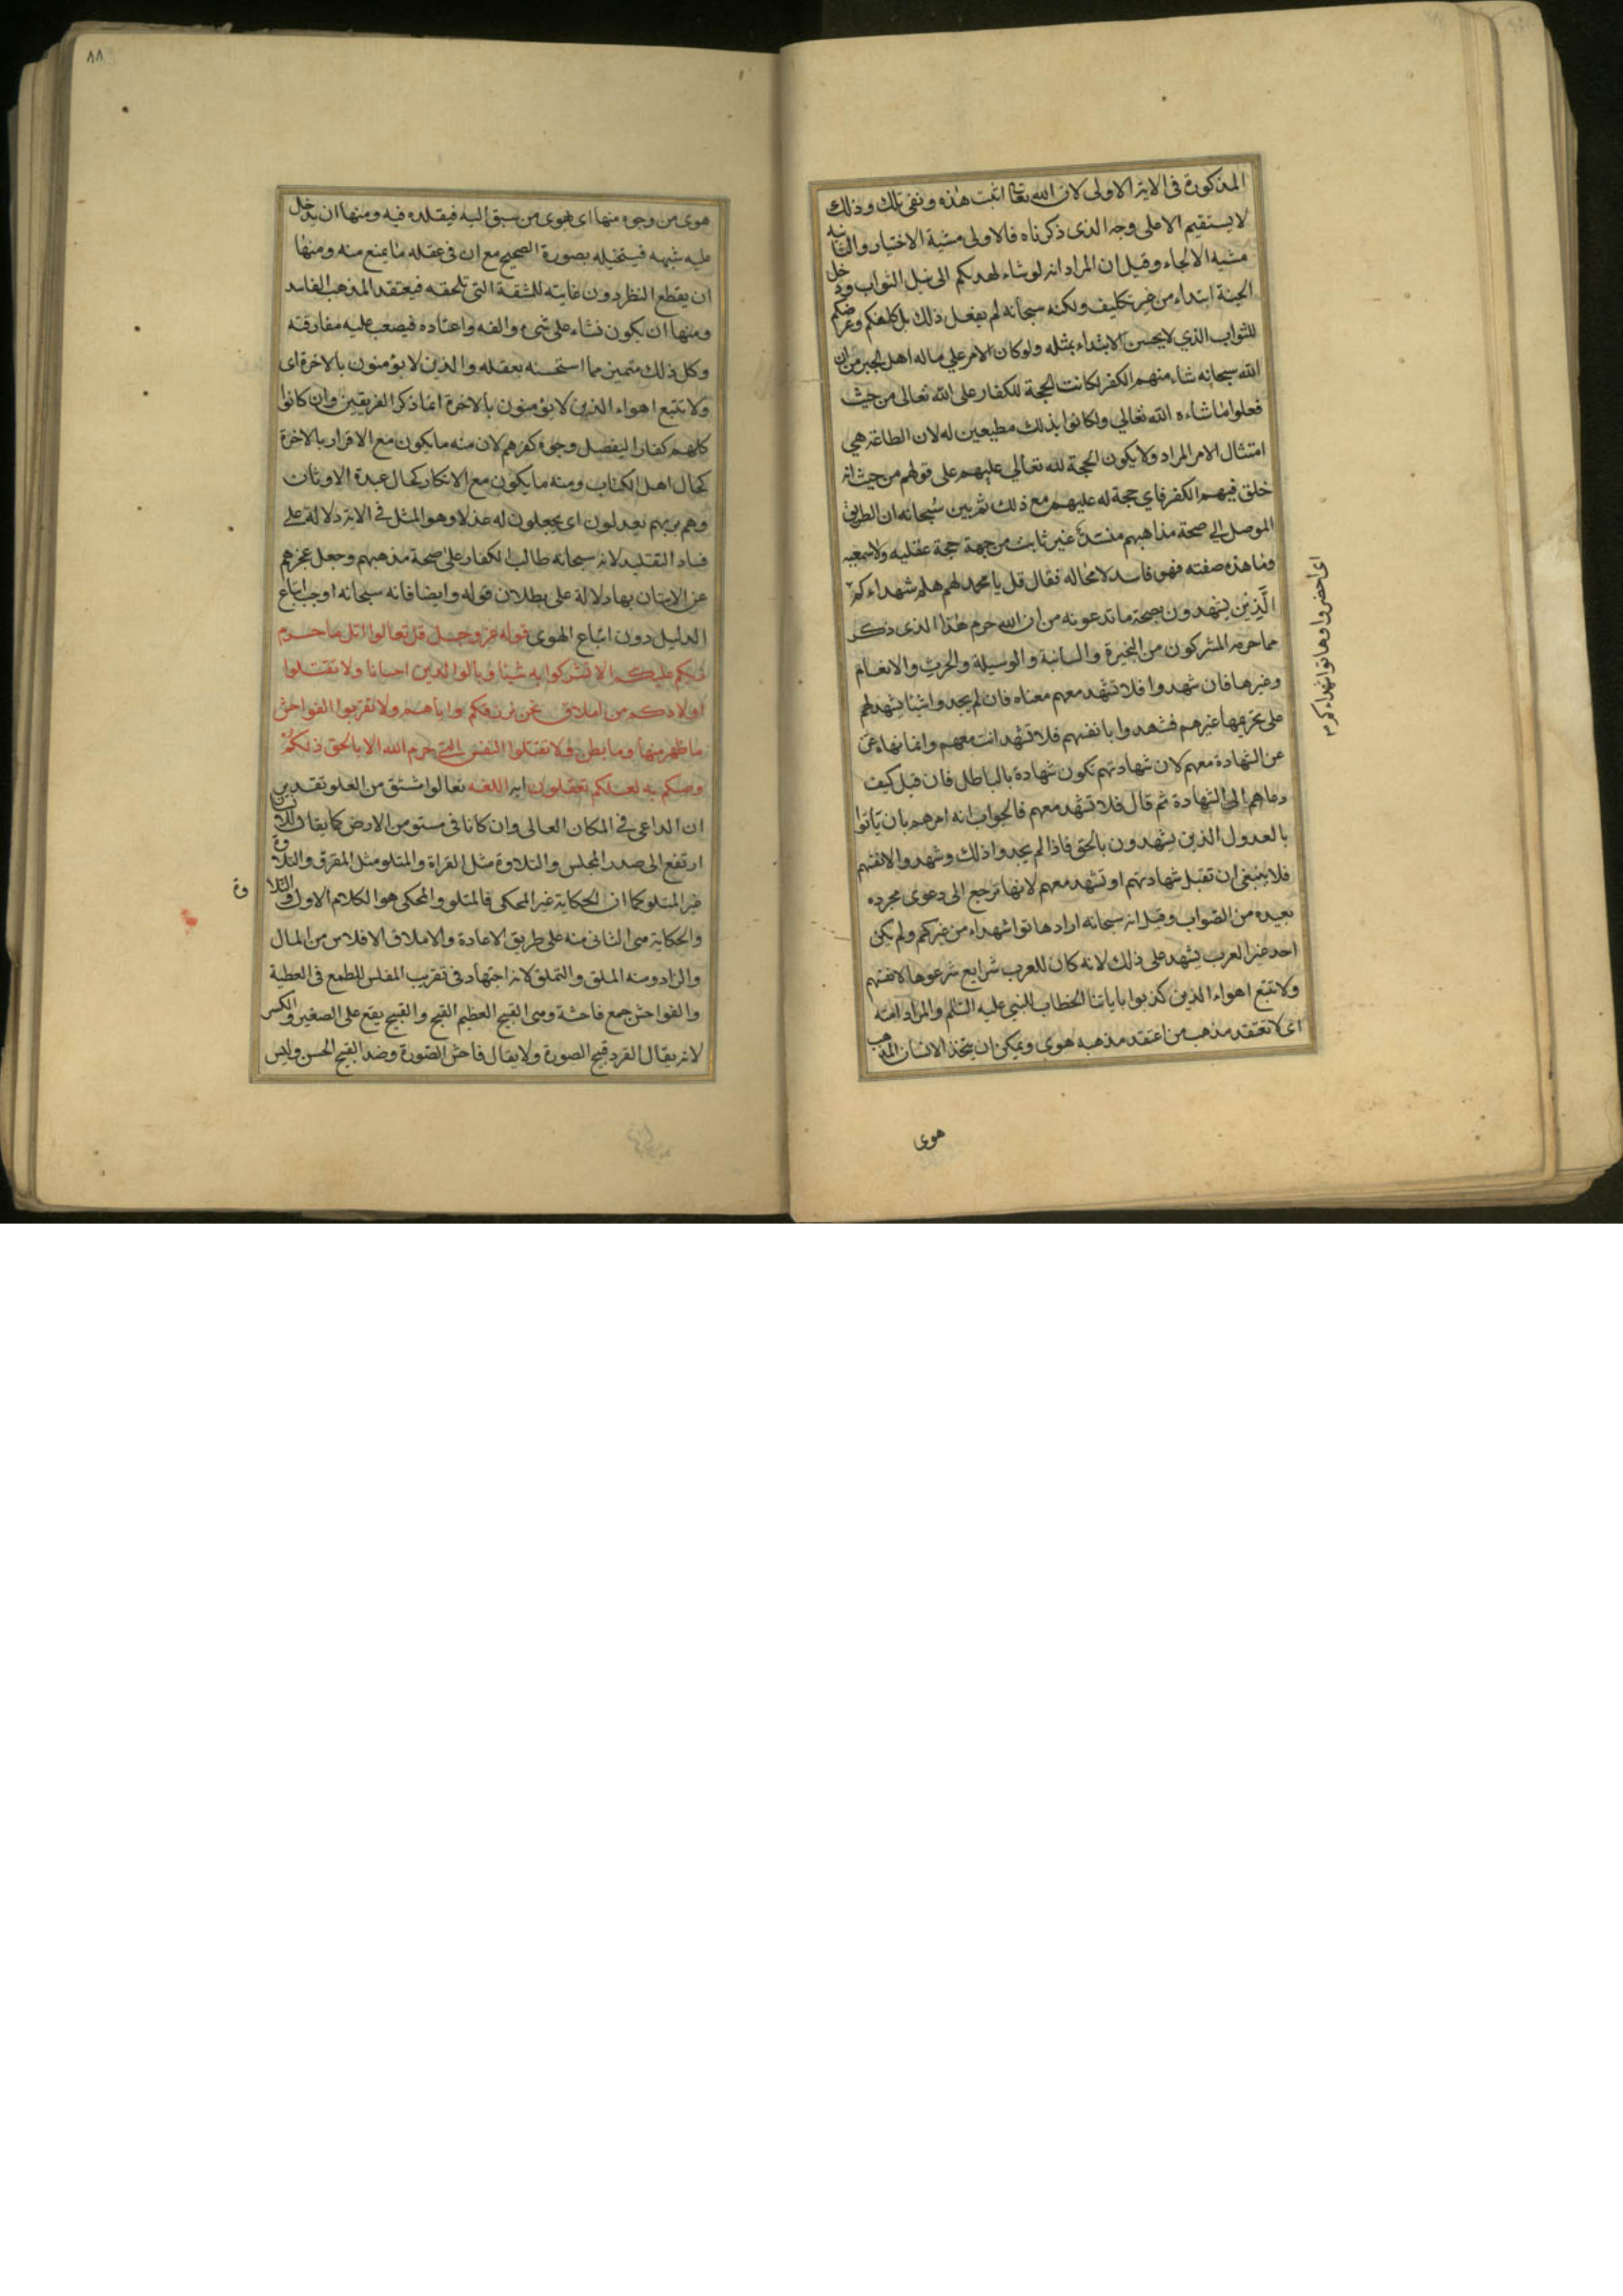 المذكورة فى الاية الاولى لان الله تعا اثبت هذه ونفى تلك وذلك
لا يستقيم الا على وجه الذى ذكرناه فالاولى مشية الاختيار والثانيه
مشية الالجاء وقيل ان المراد انه لو شاء لهديكم الى نيل الثواب ودخل
الجنة ابتداء من غير تكليف ولكنه سبحانه لم يفعل ذلك بل كلفكم وعرضكم
للثواب الذي لا يحسن الابتداء بمثله ولو كان الامر علي ما له اهل الجبر من ان
الله سبحانه شاء منهم الكفر لكانت الحجة للكفار على الله تعالى من حيث
فعلوا ما شاءه الله تعالي ولكانوا بذلك مطيعين له لان الطاعة هي
امتثال الامر المراد ولا يكون الحجة لله تعالي عليهم على قولهم من حيث انه
خلق فيهم الكفر فاي حجة له عليهم مع ذلك ثم بين سبحانه ان الطريق
الموصل الي صحة مذاهبهم غير ثابت من جهة حجة عقليه ولا سمعيه
وما هذه صفته فهو فاسد لا محاله فقال قل يا محمد لهم هلم شهداءكم
الذين يشهدون بصحة ما تدعونه من ان الله حرم هذا الذى ذكر
مما حرمه المشركون من البحيرة والسائبة والوسيلة والحرث والانعام
وغيرها فان شهدوا فلا تشهد معهم معناه فان لم يجدوا شيئا يشهد لهم
على تحريمها غيرهم فشهدوا بانفسهم فلا تشهد انت معهم وانما نهاه عن
عن الشهادة معهم لان شهادتهم تكون شهادة بالباطل فان قيل كيف
دعاهم الى الشهادة ثم قال فلا تشهد معهم فالجواب انه امرهم بان ياتوا
بالعدول الذين يشهدون بالحق فاذا لم يجدوا ذلك وشهدوا لانفسهم
فلا ينبغى ان تقبل شهادتهم او تشهد معهم لانها ترجع الى دعوى مجرده
بعيده من الصواب وقيل انه سبحانه اراد هاتوا شهداء من غيركم ولم يكن
احد غير العرب يشهد على ذلك لانه كان للعرب شرايع شرعوها لانفسهم
ولا تتبع اهواء الذين كذبوا باياتنا الخطاب للنبي عليه السلم والمراد امته
اى لا تعتقد مذهب من اعتقد مذهبه هوى ويمكن ان يتخذ الانسان المذهب
اى احضروا وهاتوا شهداءكم
هوى
٨٨
هوى من وجوه منها اى هوى من سبق اليه فيقلده فيه ومنها ان يدخل
عليه شبهه فيتخيله بصورة الصحيح مع ان فى عقله ما يمنع منه ومنها
ان يقطع النظر دون غايته للمشقة التى تلحقه فيعتقد المذهب الفاسد
ومنها ان يكون نشاء على شىء والفه واعتاده فيصعب عليه مفارقته
وكل ذلك متميز مما استحسنه بعقله والذين لا يؤمنون بالاخرة اى
ولا تتبع اهواء الذين لا يؤمنون بالاخرة انما ذكر الفريقين وان كانوا
كلهم كفارا ليفصل وجوه كفرهم لان منه ما يكون مع الاقرار بالاخرة
كحال اهل الكتاب ومنه ما يكون مع الانكار كحال عبدة الاوثان
وهم بربهم يعدلون اى يجعلون له عدلا وهو المثل فى الاية دلالة على
فساد التقليد لانه سبحانه طالب الكفار على صحة مذهبهم وجعل عجزهم
عن الاتيان بها دلالة على بطلان قوله وايضا فانه سبحانه اوجب اتباع
الدليل دون اتباع الهوى قوله عز وجل قل تعالوا اتل ما حرم
ربكم عليكم الا تشركوا به شيئا وبالوالدين احسانا ولا تقتلوا
اولادكم من املاق نحن نرزقكم واياهم ولا تقربوا الفواحش
ما ظهر منها وما بطن ولا تقتلوا النفس التي حرم الله الا بالحق ذلكم
وصيكم به لعلكم تعقلون اية اللغه تعالوا اشتق من العلو تقديره
ان الداعى فى المكان العالى وان كانا فى مستو من الارض كما يقال للانسان
ارتفع الى صدر المجلس والتلاوة مثل القراة والمتلو مثل المقرو والتلاوة
غير المتلو كما ان الحكاية غير المحكى فالمتلو والمحكى هو الكلام الاول والتلاوة
والحكاية هى الثانى منه على طريق الاعادة والاملاق الافلاس من المال
والزاد ومنه الملق والتملق لانه اجتهاد فى تقريب المفلس للطمع فى العطية
والفواحش جمع فاحشة وهى القبيح العظيم القبح والقبيح يقع على الصغير والكبير
لانه يقال القرد قبيح الصورة ولا يقال فاحش الصورة وضد القبيح الحسن وليس